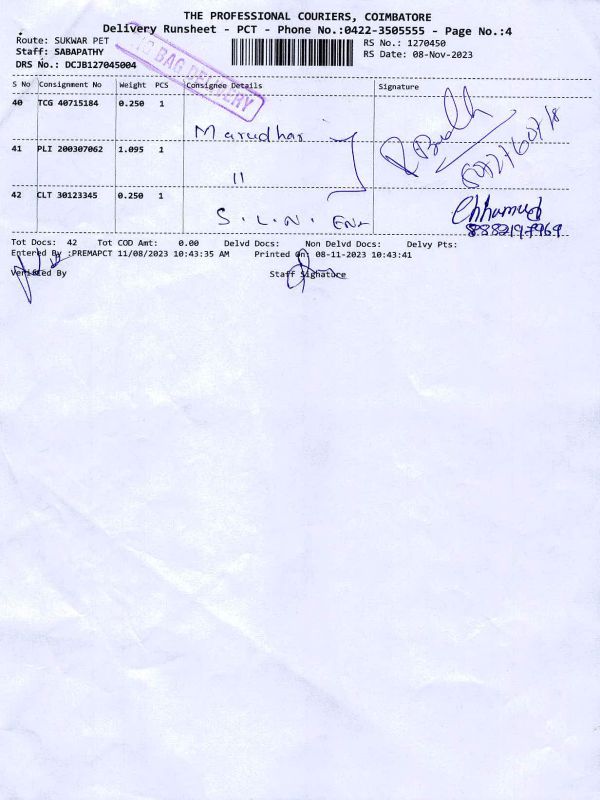 THE PROFESSIONAL COURIERS, COIMBATORE
Delivery Runsheet - PCT - Phone No.:0422-3505555 - Page No.:4
Route: SUKWAR PET
RS No.: 1270450
Staff: SABAPATHY
RS Date: 08-Nov-2023
DRS No.: DCJB127045004
BAG DELIVERY
S No Consignment No Weight PCS Consignee Details Signature
40 TCG 40715184 0.250 1 Marudhar
41 PLI 200307062 1.095 1 11
42 CLT 30123345 0.250 1 S.L.N.
Tot Docs: 42 Tot COD Amt: 0.00 Delvd Docs: Non Delvd Docs: Delvy Pts:
Entered By :PREMAPCT 11/08/2023 10:43:35 AM Printed On: 08-11-2023 10:43:41
Verified By Staff Signature